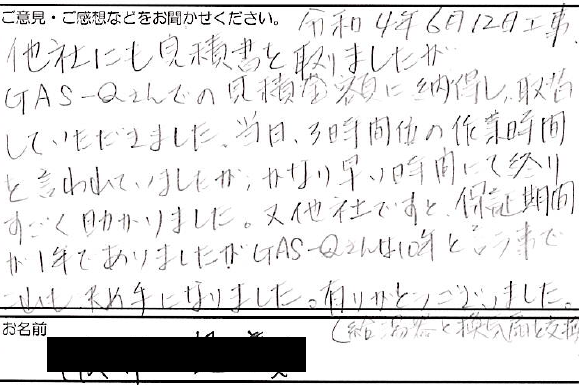 ご意見・ご感想などをお聞かせください。 令和4年6月12日工事
他社にも見積書を取りましたが
GAS-Qさんでの見積金額に納得し、取替
していただきました。当日、3時間位の作業時間
と言われていましたが、かなり早い時間にて終り
すごく助かりました。又他社ですと、保証期間
が1年でありましたがGAS-Qさんは10年と言う事で
これも決め手になりました。有りがとうございました。
お名前
(給湯器と換気扇を交換